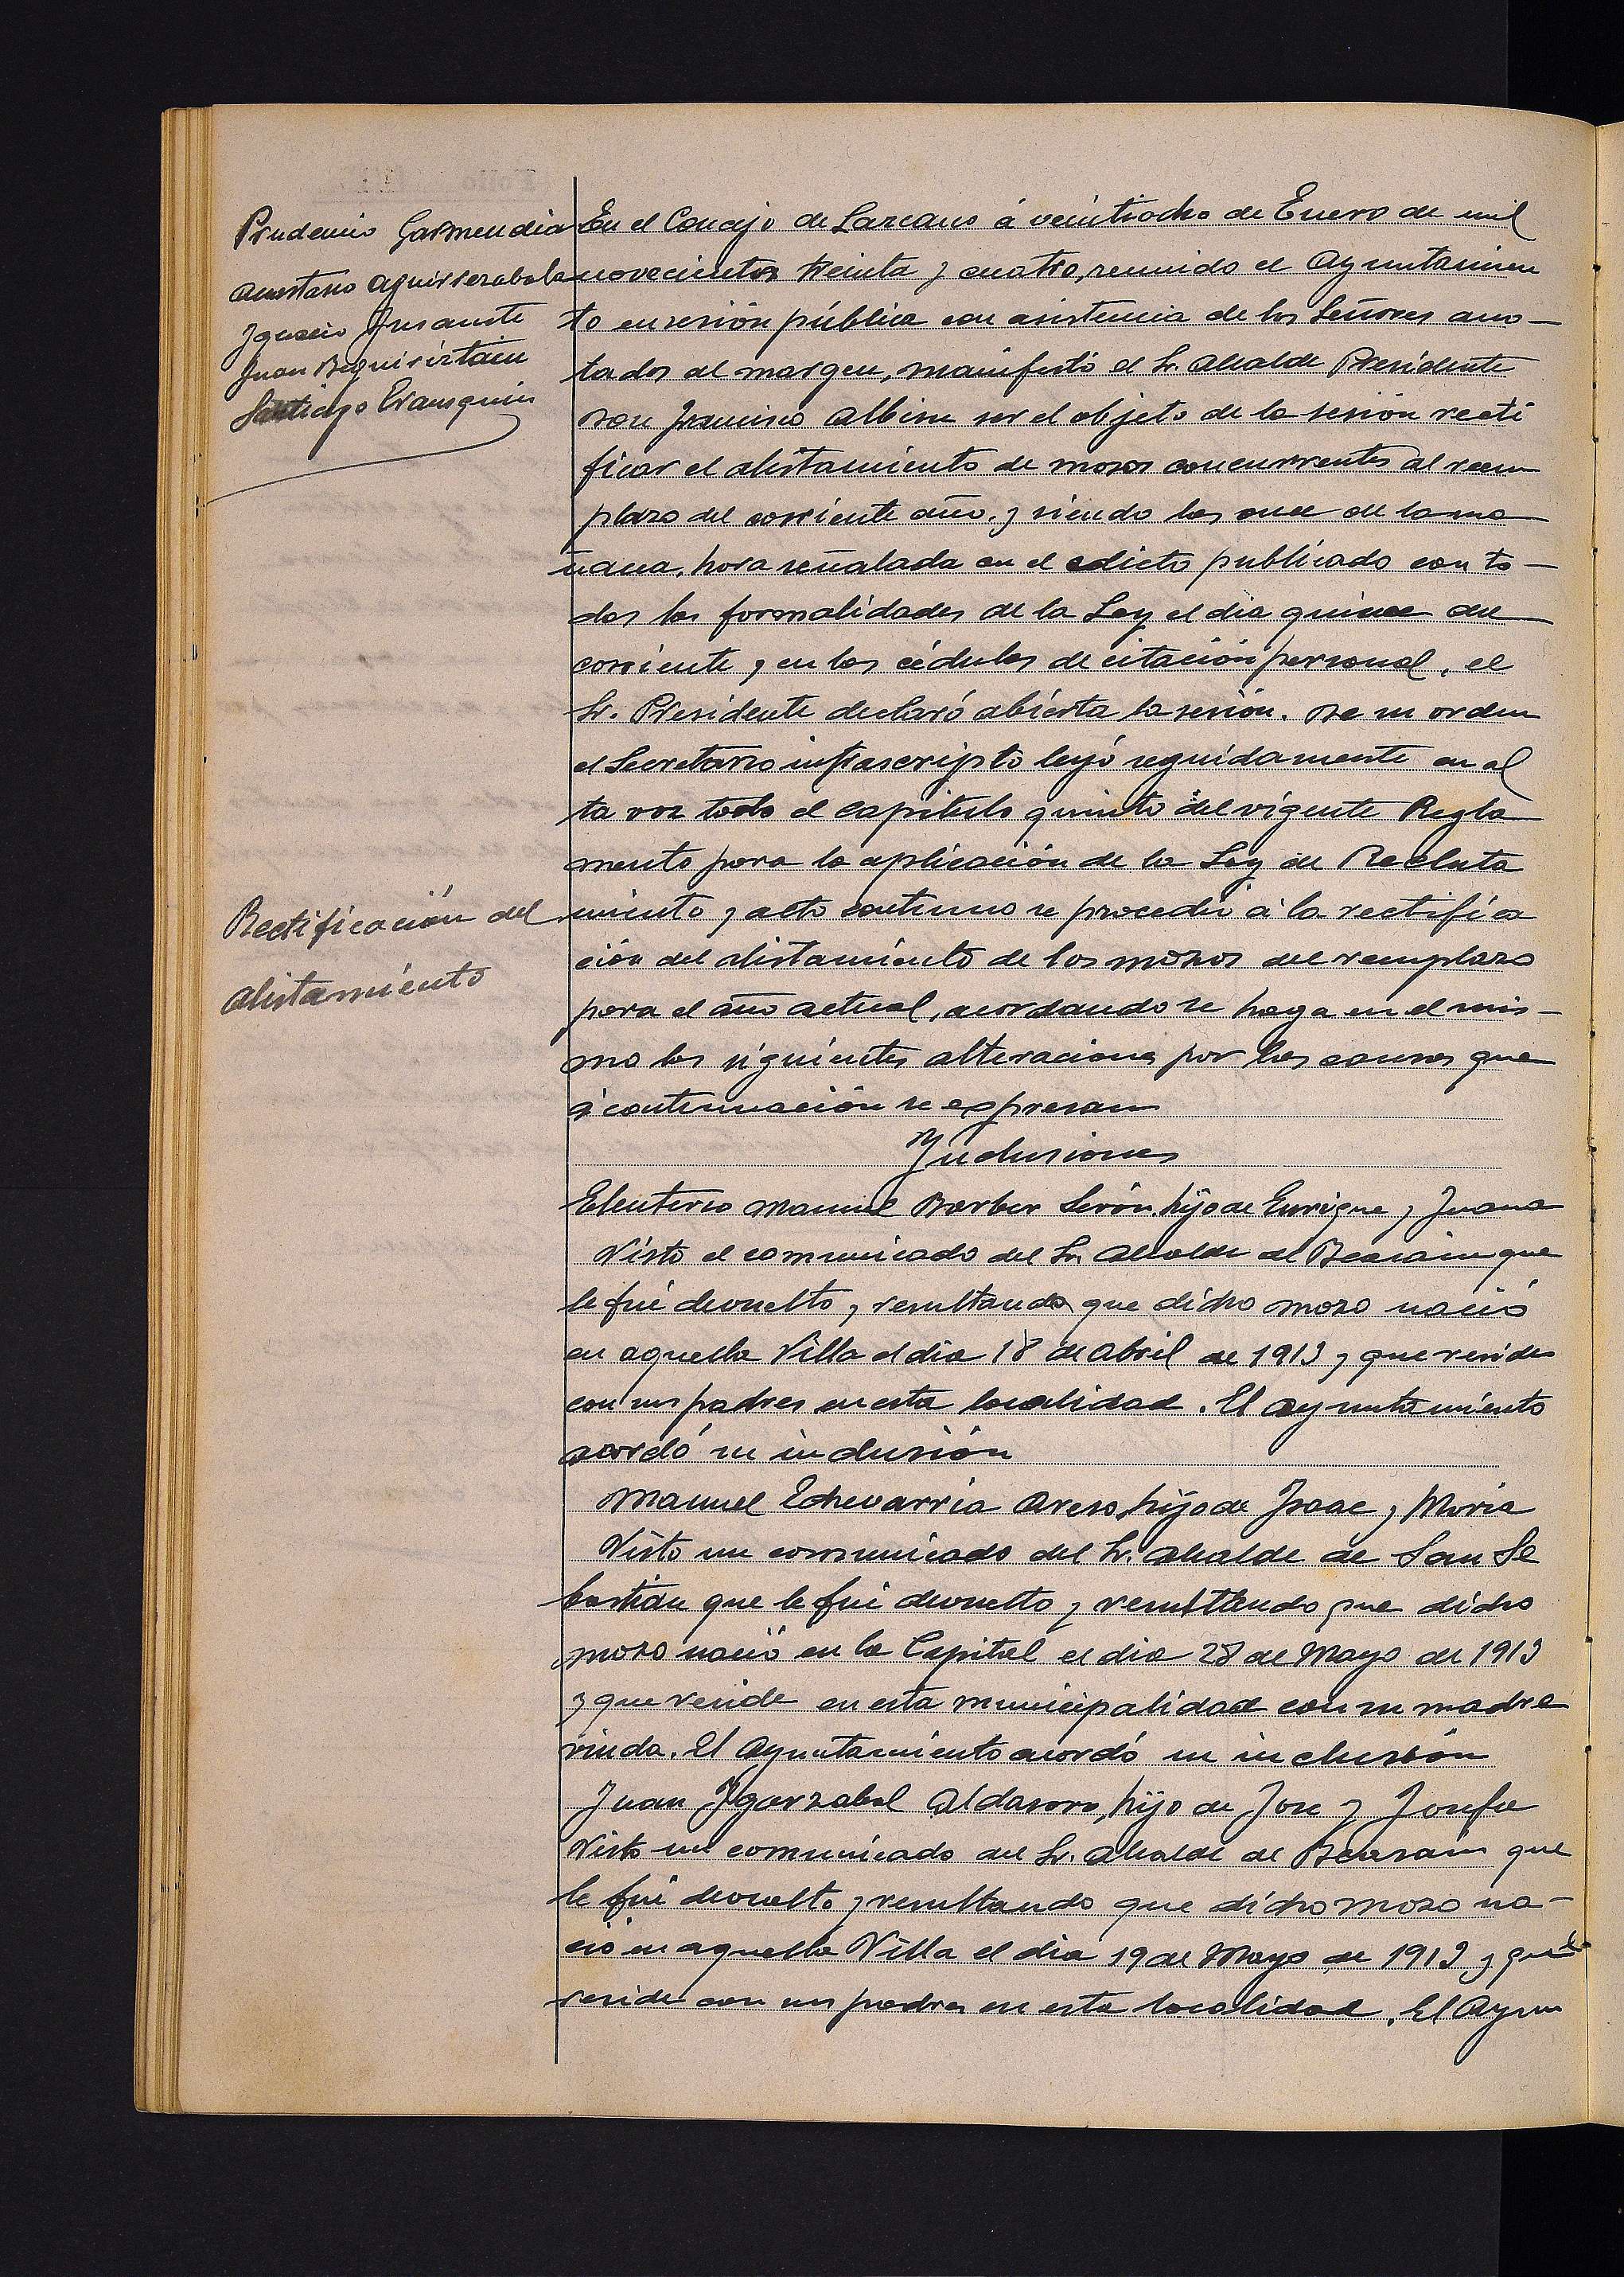 Prudencio Garmendia
Anastasio Aguirrezabala
Ignacio Insausti
Juan Beguiristain
Santiago Erausquin
En el Concejo de Lazcano á veintiocho de Enero de mil
novecientos treinta y cuatro, reunido el Ayuntamien
to en sesión pública con asistencia de los Señores ano-
tados al margen, manifestó el Sr. Alcalde Presidente
Don Francisco Albisu ser el objeto de la sesión recti
ficar el alistamiento de mozos concurrentes al reem
plazo del corriente año, y siendo las once de la ma
ñana, hora señalada en el edicto publicado con to-
das las formalidades de la Ley el dia quince del
corriente y en las cédulas de citación personal, el
Sr. Presidente declaró abierta la sesión. De su orden
el Secretario infrascripto leyó seguidamente en al
ta voz todo el capitulo quinto del vigente Regla
mento para la aplicación de la Ley de Recluta
Rectificación del
alistamiento
miento y acto continuo se procedió á la rectifica
ción del alistamiento de los mozos del reemplazo
para el año actual, acordando se haga en el mis-
mo las siguientes alteraciones por las causas que
á continuación se expresan
Inclusiones
Eleuterio Manuel Barber Serón, hijo de Enrique y Juana
Visto el comunicado del Sr. Alcalde de Beasain que
le fué devuelto, y resultando que dicho mozo nació
en aquella Villa el dia 18 de Abril de 1913 y que reside
con sus padres en esta localidad. El Ayuntamiento
acordó su inclusión
Manuel Echevarria Areso, hijo de Isaac y Maria
Visto un comunicado del Sr. Alcalde de San Se
bastián que le fué devuelto y resultando que dicho
mozo nació en la Capital el dia 28 de Mayo de 1913
y que reside en esta municipalidad con su madre
viuda. El Ayuntamiento acordó su inclusión
Juan Igarzabal Aldasoro, hijo de Jose y Josefa
Visto un comunicado del Sr. Alcalde de Beasain que
le fué devuelto y resultando que dicho mozo na-
ció en aquella Villa el dia 19 de Mayo de 1913 y que
reside con sus padres en esta localidad. El Ayun